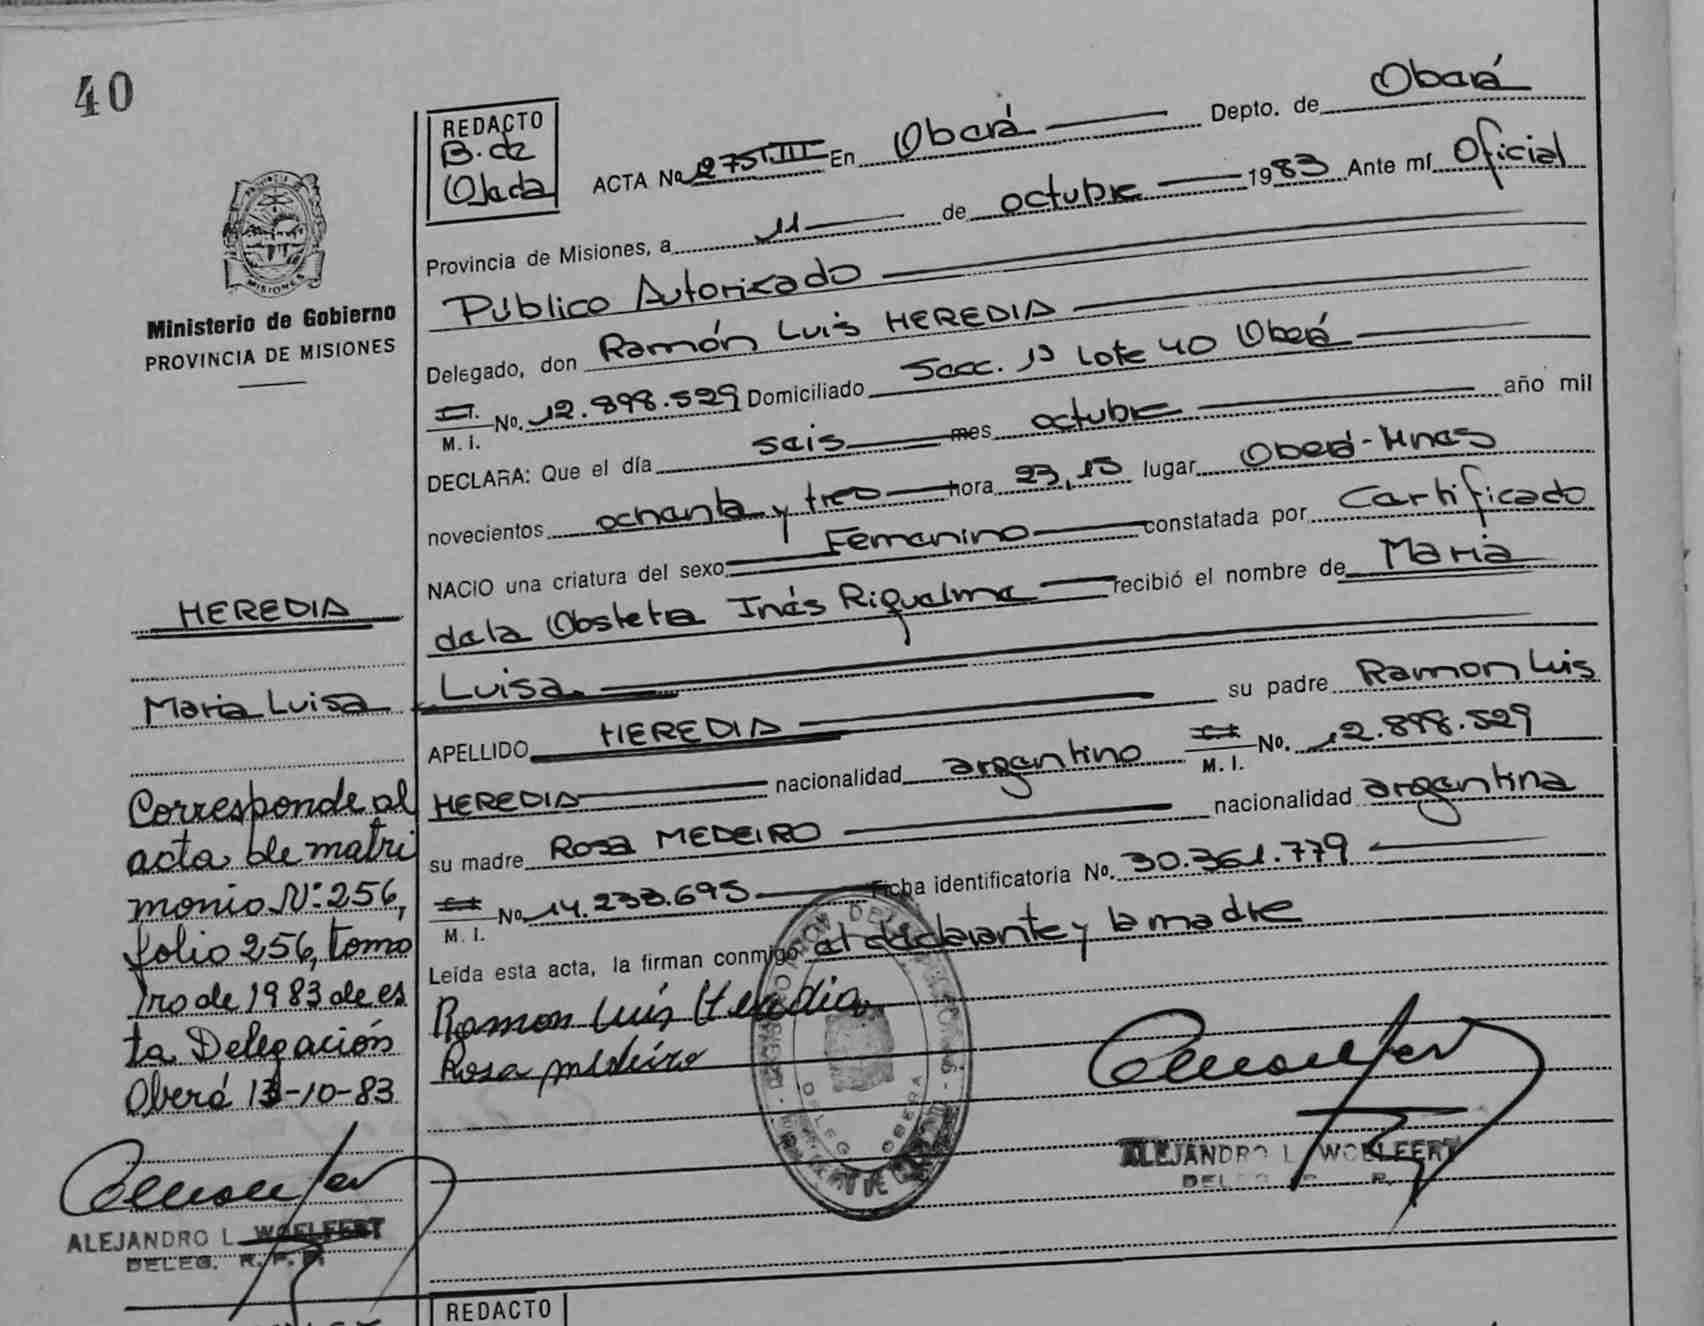 40
REDACTO
B. de
Ojeda
ACTA No 1275T.III En Oberá Depto. de Oberá
Provincia de Misiones, a 11 de octubre 1983 Ante mí Oficial
Público Autorizado
Delegado, don Ramón Luis HEREDIA
M. I. No. 12.898.529 Domiciliado Secc. 1ª Lote 40 Oberá
DECLARA: Que el día seis mes octubre año mil
novecientos ochenta y tres hora 23,15 lugar Oberá-Mnes
NACIO una criatura del sexo Femenino constatada por Certificado
de la Obstetra Inés Riquelme recibió el nombre de María
Luisa
APELLIDO HEREDIA su padre Ramon Luis
HEREDIA nacionalidad argentino M. I. No. 12.898.529
su madre Rosa MEDEIRO nacionalidad argentina
M. I. No 14.233.695 Ficha identificatoria No. 30.361.779
Leída esta acta, la firman conmigo el declarante y la madre
Ramon Luis Heredia
Rosa medeiro
ALEJANDRO L. WOELFERT
MISIONES
Ministerio de Gobierno
PROVINCIA DE MISIONES
HEREDIA
Maria Luisa
Corresponde al
acta de matri
monio N: 256,
folio 256, tomo
1ro de 1983 de es
ta Delegación
Oberá 13-10-83
ALEJANDRO L. WOELFERT
DELEG. R. P. P.
DELEG OBERA
REDACTO